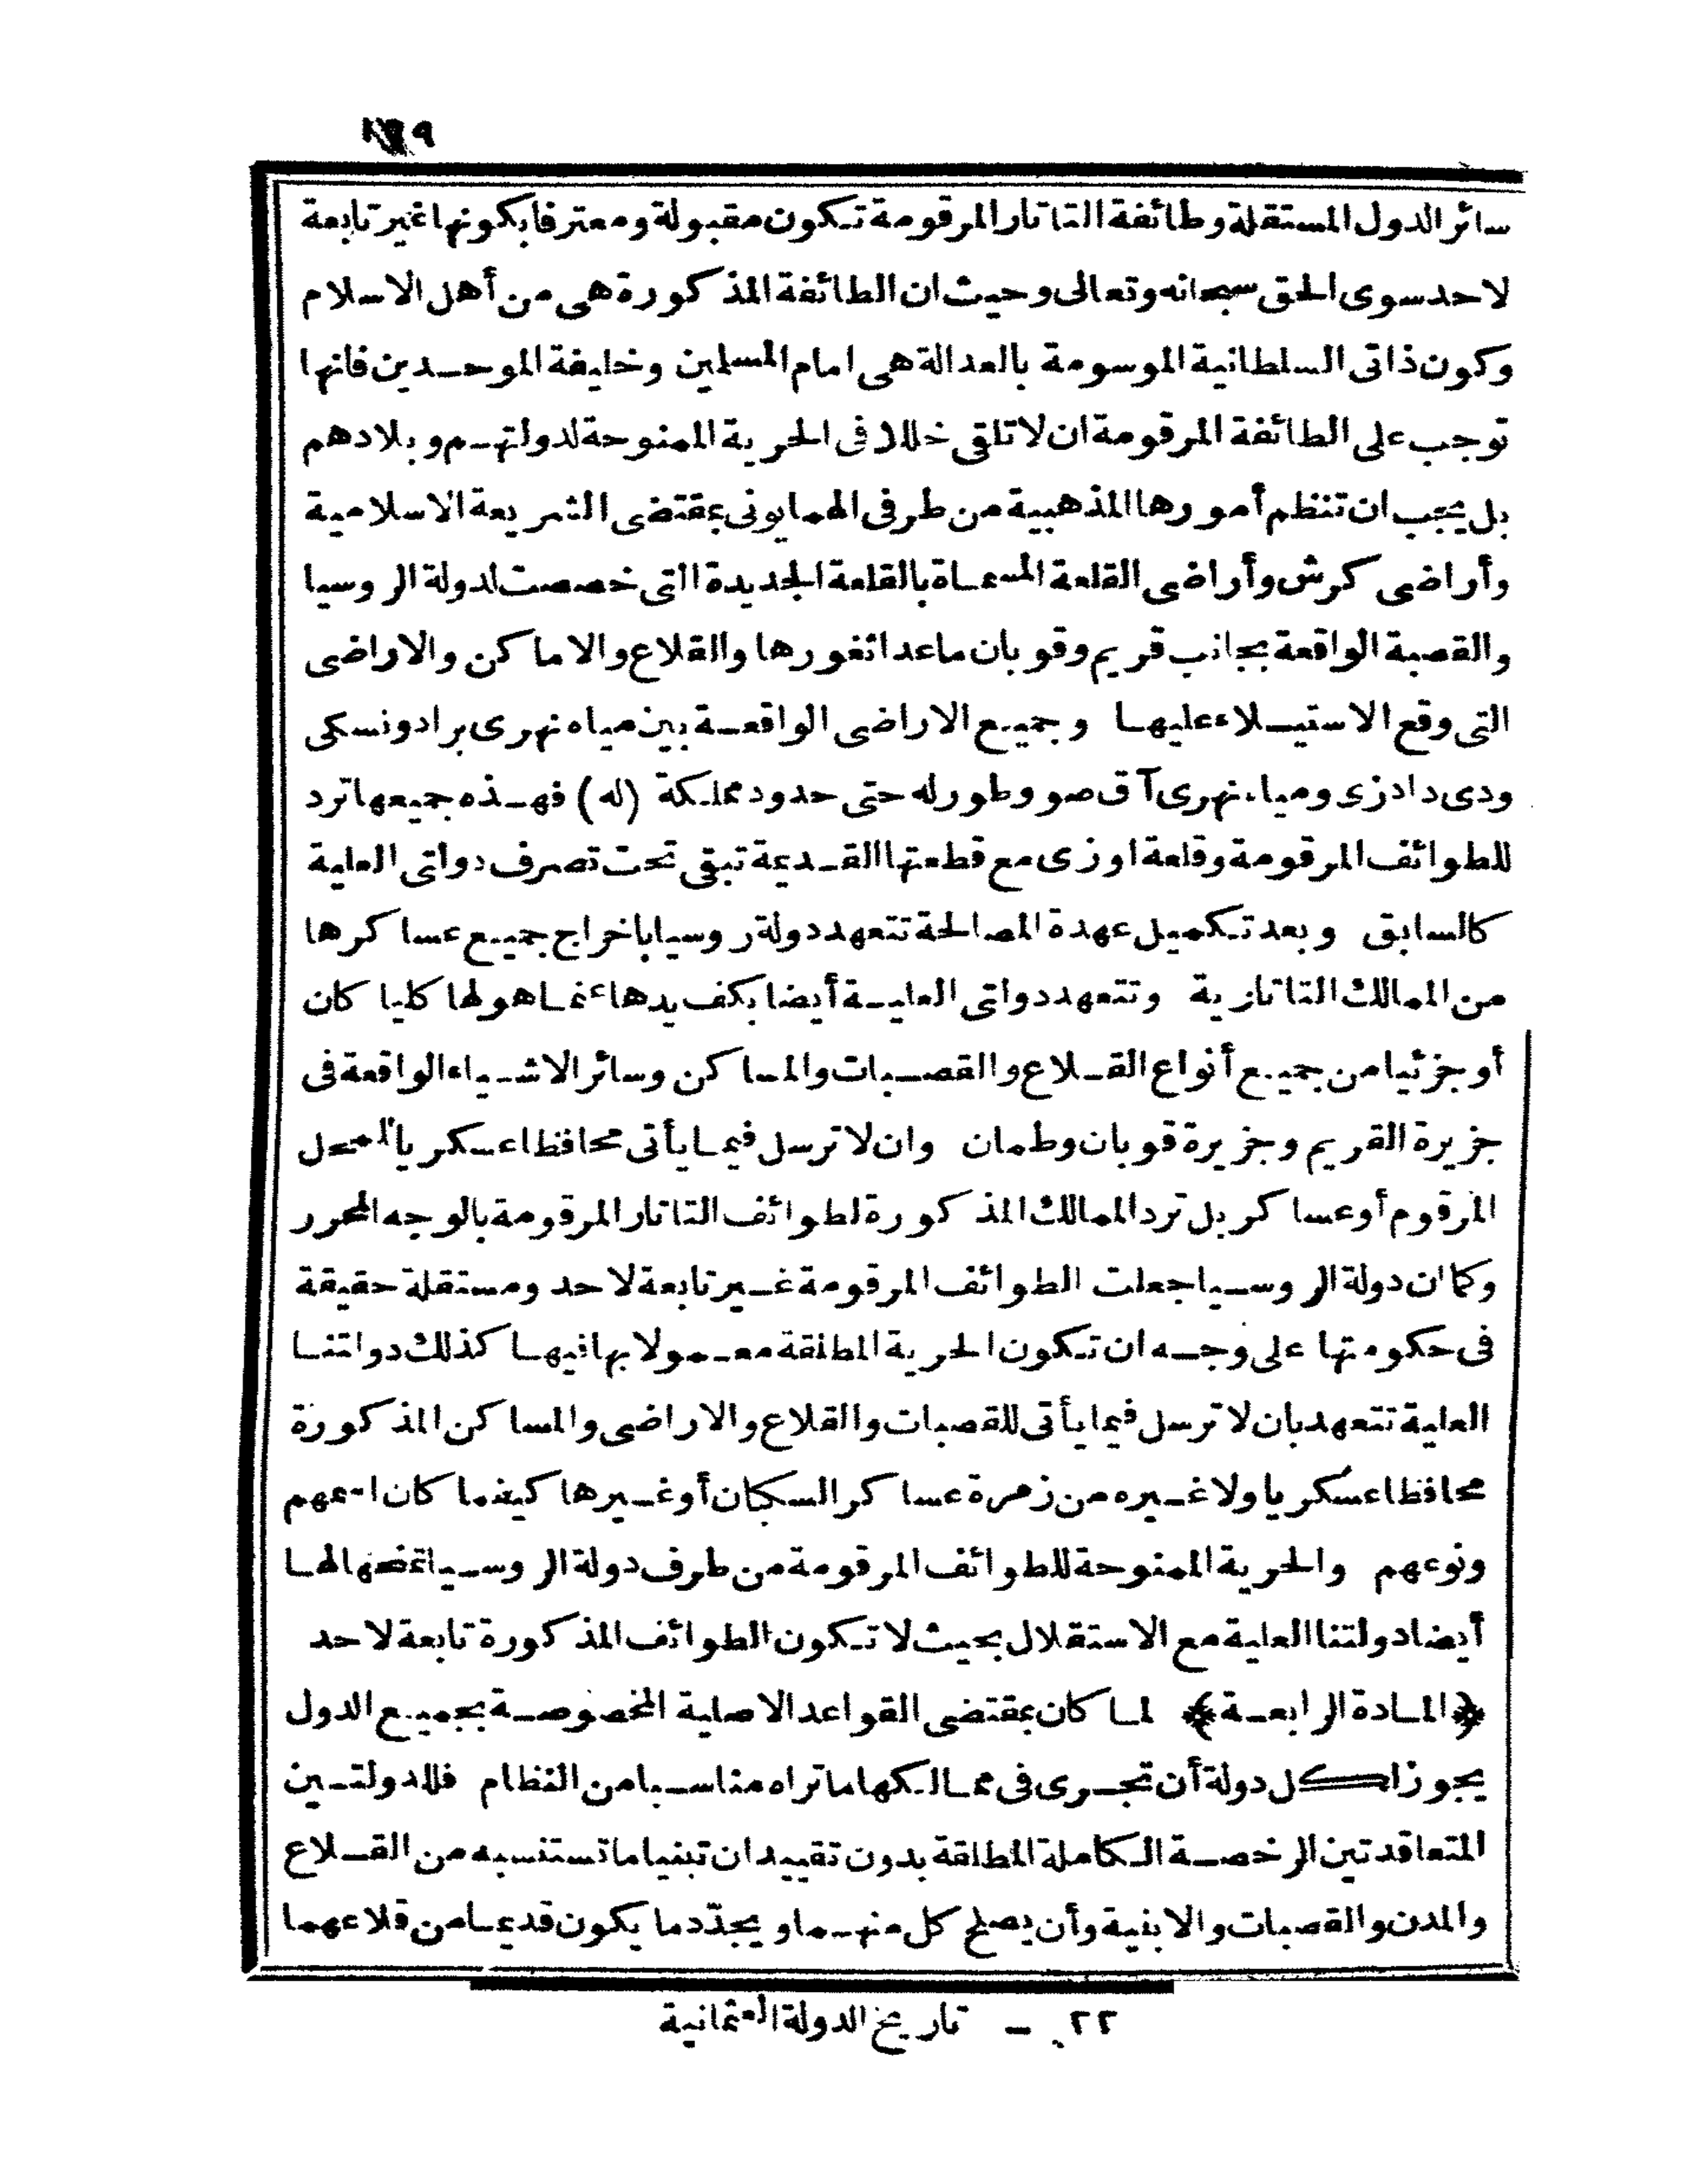 سائر الدول المستقلة وطائفة التاتار المرقومة تكون مقبولة ومعترفا بكونها غير تابعة
لاحد سوى الحق سبحانه وتعالى وحيث ان الطائفة المذكورة هى من أهل الاسلام
وكون ذاتى السلطانية الموسومة بالعدالة هى امام المسلمين وخليفة الموحدين فانها
توجب على الطائفة المرقومة ان لا تلقى خللا فى الحرية الممنوحة لدولتهم وبلادهم
بل يجب ان تنظم أمورها المذهبية من طرفى الهمايونى بمقتضى الشريعة الاسلامية
وأراضى كرش وأراضى القلعة المسماة بالقلعة الجديدة التى خصصت لدولة الروسيا
والقصبة الواقعة بجانب قريم وقوبان ماعدا ثغورها والقلاع والاماكن والاراضى
التى وقع الاستيلاء عليها وجميع الاراضى الواقعة بين مياه نهرى برادونسكى
ودى دادزى ومياه نهرى آق صو وطورله حتى حدود مملكة (له) فهذه جميعها ترد
للطوائف المرقومة وقلعة اوزى مع قطعتها القديمة تبقى تحت تصرف دولتى العلية
كالسابق وبعد تكميل عهدة المصالحة تتعهد دولة روسيا باخراج جميع عساكرها
من الممالك التاتارية وتتعهد دولتى العلية أيضا بكف يدها عما هو لها كليا كان
أو جزئيا من جميع أنواع القلاع والقصبات والمساكن وسائر الاشياء الواقعة فى
جزيرة القريم وجزيرة قوبان وطمان وان لا ترسل فيما يأتى محافظا عسكريا للمحل
المرقوم أو عساكر بل ترد الممالك المذكورة لطوائف التاتار المرقومة بالوجه المحرر
وكما ان دولة الروسيا جعلت الطوائف المرقومة غير تابعة لاحد ومستقلة حقيقة
فى حكومتها على وجه ان تكون الحرية المطلقة معمولا بها فيها كذلك دولتنا
العلية تتعهد بان لا ترسل فيما يأتى للقصبات والقلاع والاراضى والمساكن المذكورة
محافظا عسكريا ولا غيره من زمرة عساكر السكبان أو غيرها كيفما كان اسمهم
ونوعهم والحرية الممنوحة للطوائف المرقومة من طرف دولة الروسيا تمنحها لها
أيضا دولتنا العلية مع الاستقلال بحيث لا تكون الطوائف المذكورة تابعة لاحد
﴿المادة الرابعة﴾ لما كان بمقتضى القواعد الاصلية المخصوصة بجميع الدول
يجوز لكل دولة أن تجرى فى ممالكها ما تراه مناسبا من النظام فللدولتين
المتعاقدتين الرخصة الكاملة المطلقة بدون تقييد ان تبنيا ما تستنسبه من القلاع
والمدن والقصبات والابنية وأن يصلح كل منهما ويجدّد ما يكون قديما من قلاعهما
٢٢ - تاريخ الدولة العثمانية